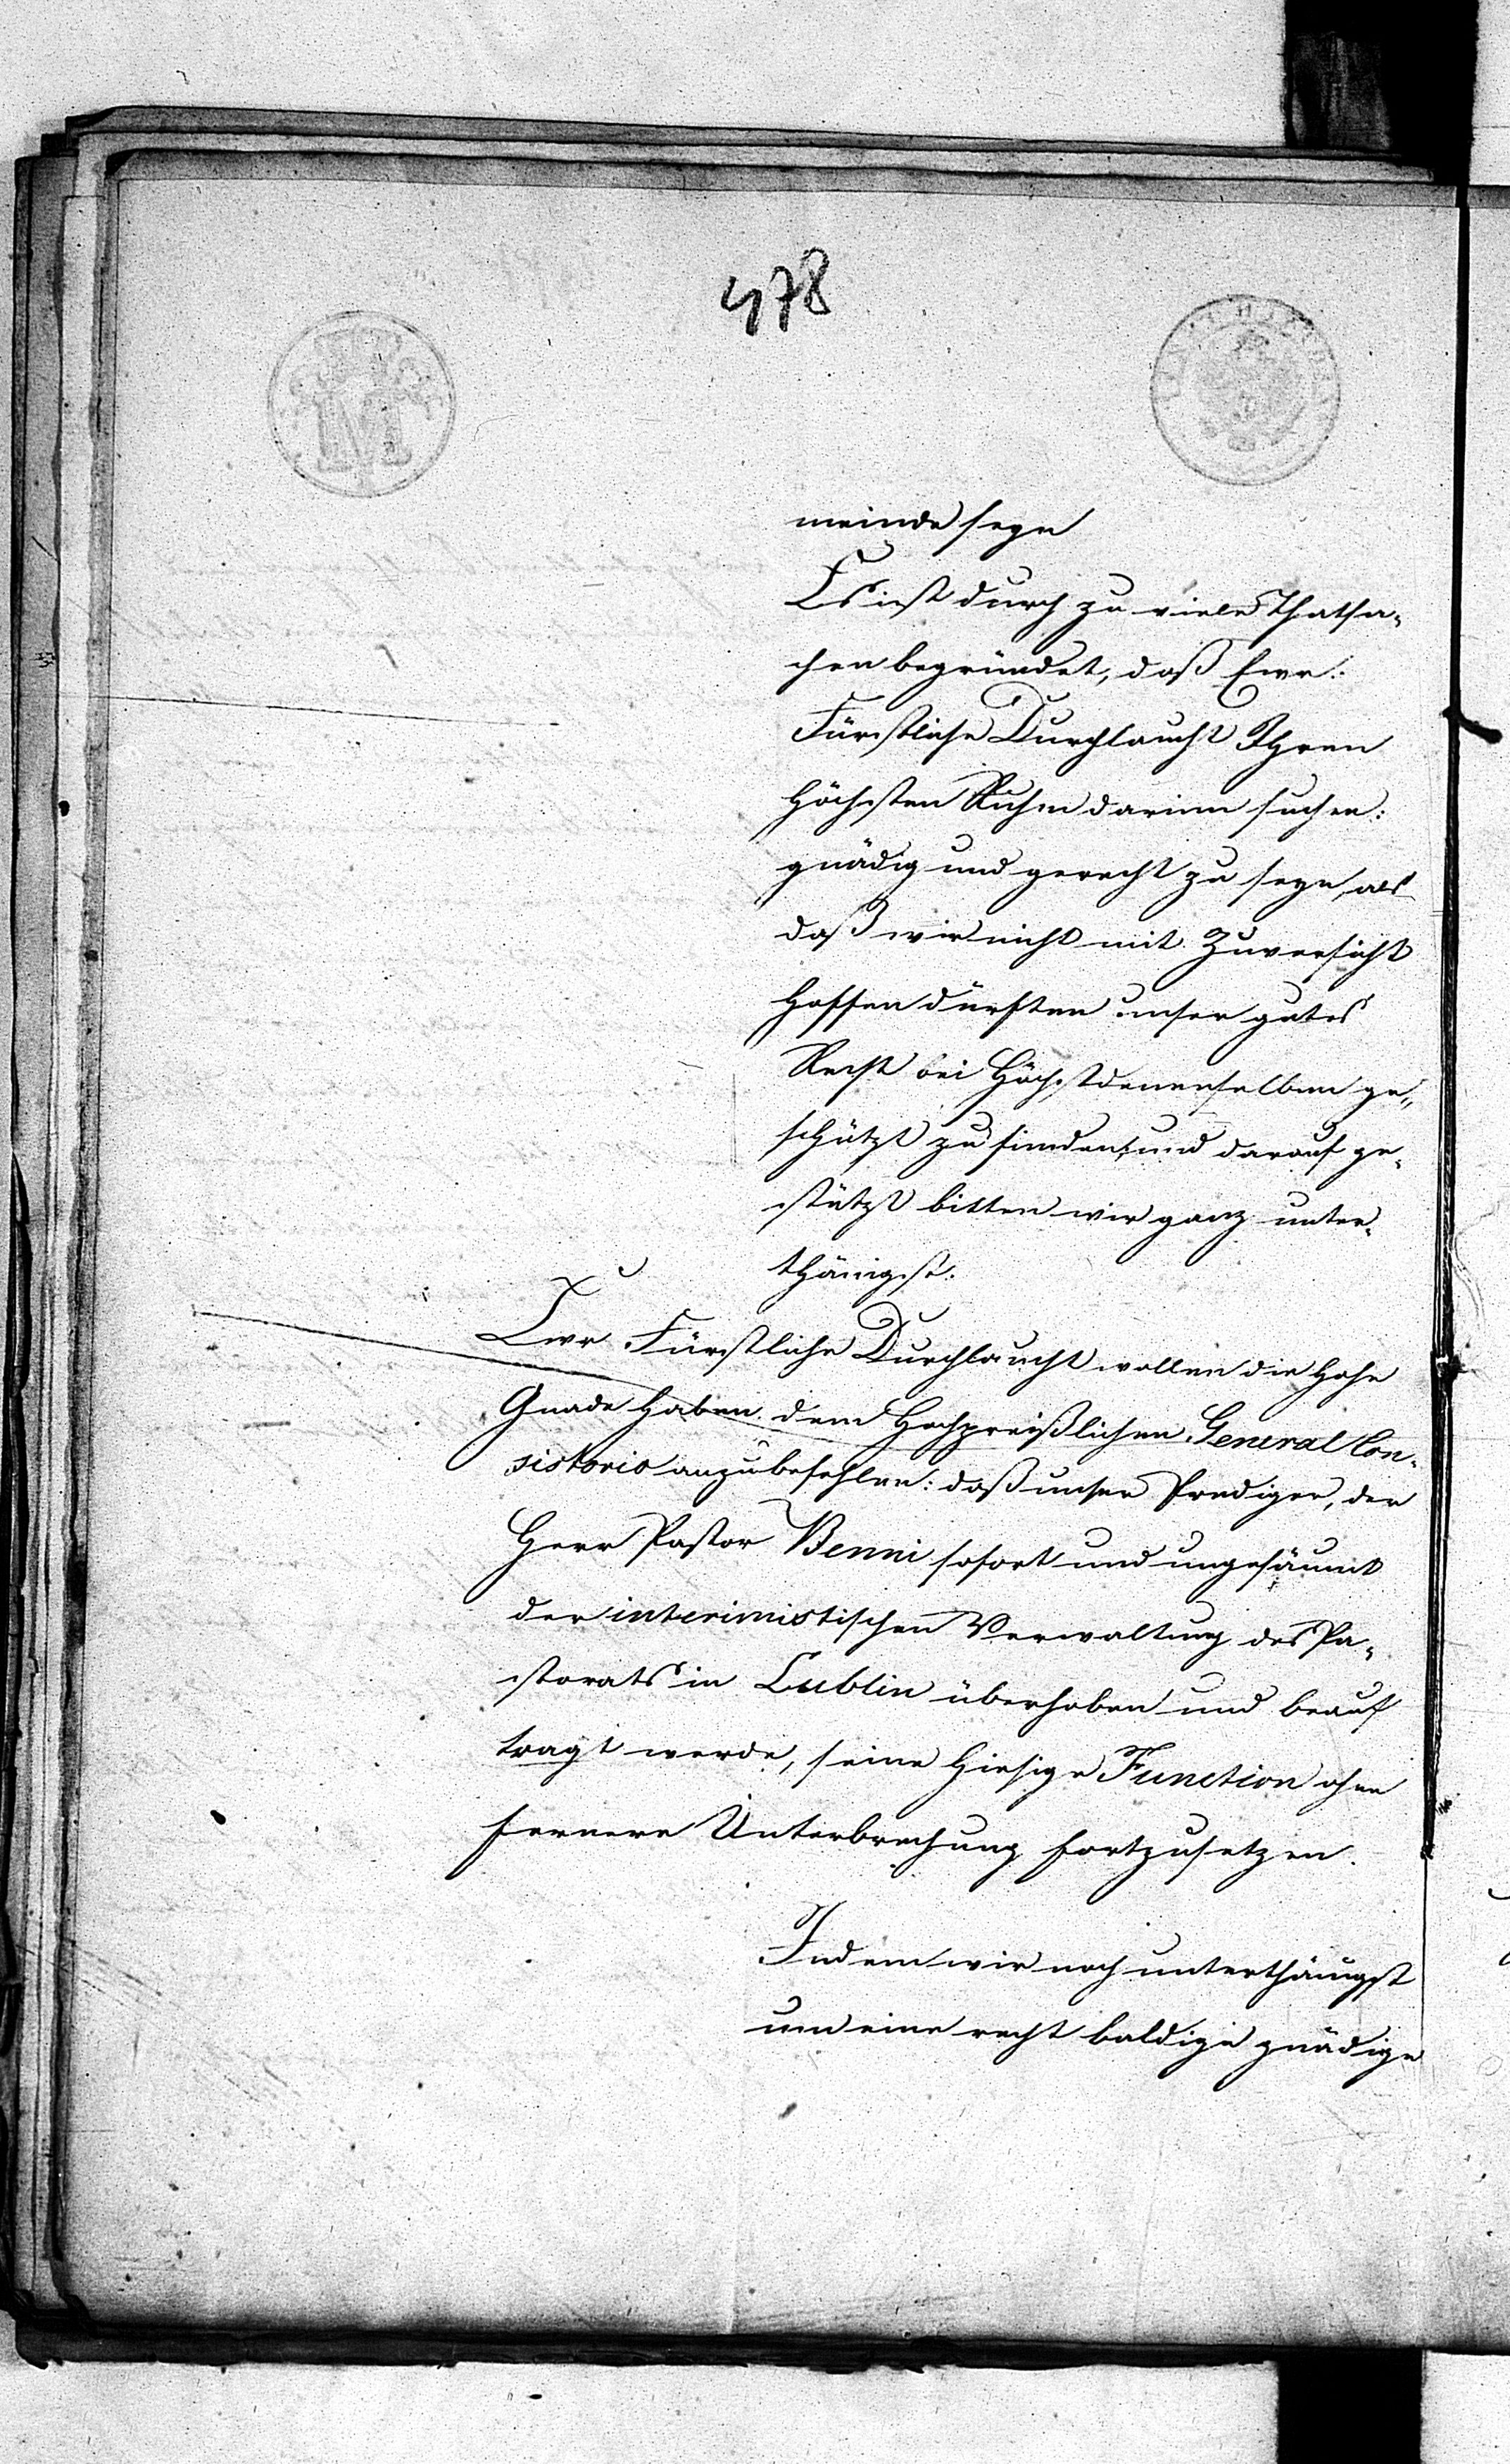 478
meinde seyn
Es ist durch zu viele Thatsa-
chen begründet, daß Ewr.
Fürstliche Durchlaucht Ihren
höchsten Ruhm darinn suchen:
gnädig und gerecht zu seyn, als
daß wir nicht mit Zuversicht
hoffen dürften unser gutes
Recht bei Höchstdenenselben ge-
schützt zu finden; und darauf ge-
stützt bitten wir ganz unter-
thänigst:
Ewr Fürstliche Durchlaucht wollen die hohe
Gnade haben dem Hochpreißlichen General Con-
sistorio anzubefehlen: daß unser Prediger, der
Herr Pastor Benni sofort und ungesäumt
der interimistischen Verwaltung des Pa-
storats in Lublin überhoben und beauf
tragt werde, seine hiesige Function ohne
fernere Unterbrechung fortzusetzen.
Indem wir noch unterthänigst
um eine recht baldige gnädige